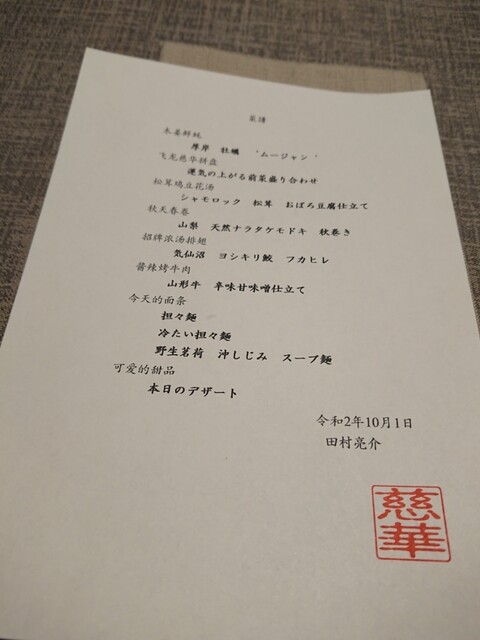 菜譜
木姜鲜蚝
厚岸　牡蠣　‘ムージャン’
飞龙慈华拼盘
運気の上がる前菜盛り合わせ
松茸鸡豆花汤
シャモロック　松茸　おぼろ豆腐仕立て
秋天春卷
山梨　天然ナラタケモドキ　秋巻き
招牌浓汤排翅
気仙沼　ヨシキリ鮫　フカヒレ
酱辣烤牛肉
山形牛　辛味甘味噌仕立て
今天的面条
担々麺
冷たい担々麺
野生茗荷　沖しじみ　スープ麺
可爱的甜品
本日のデザート
令和2年10月1日
田村亮介
慈華